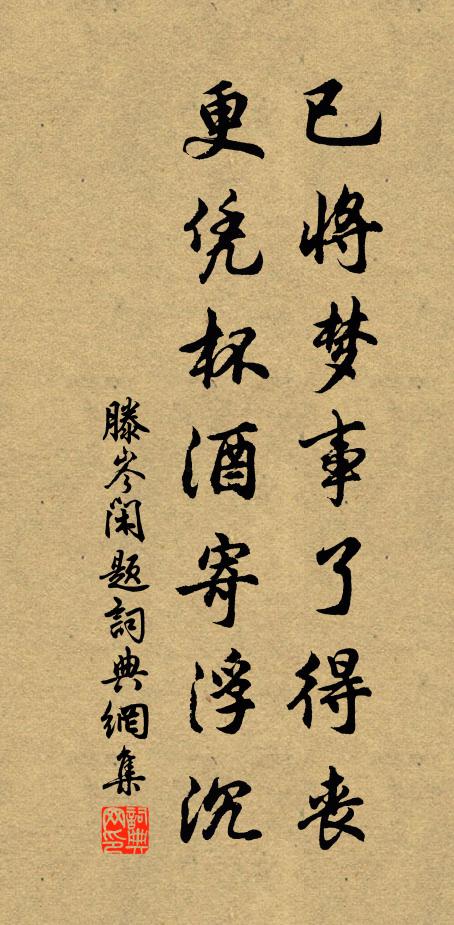 已将梦事了得丧
更凭杯酒寄浮沉
滕岑闲题詞典網集
詞典网印